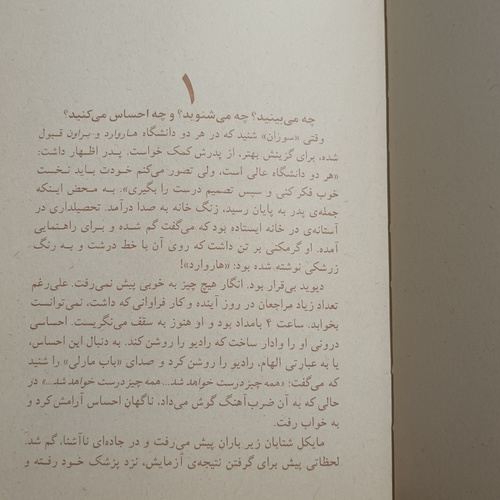 ۱
چه می‌بینید؟ چه می‌شنوید؟ و چه احساس می‌کنید؟
وقتی «سوزان» شنید که در هر دو دانشگاه هاروارد و براون قبول
شده، برای گزینش بهتر، از پدرش کمک خواست. پدر اظهار داشت:
«هر دو دانشگاه عالی است، ولی تصور می‌کنم خودت باید نخست
خوب فکر کنی و سپس تصمیم درست را بگیری». به محض اینکه
جمله‌ی پدر به پایان رسید، زنگ خانه به صدا درآمد. تحصیلداری در
آستانه‌ی در خانه ایستاده بود که می‌گفت گم شده و برای راهنمایی
آمده. او گرمکنی بر تن داشت که روی آن با خط درشت و به رنگ
زرشکی نوشته شده بود: «هاروارد»!
دیوید بی‌قرار بود. انگار هیچ چیز به خوبی پیش نمی‌رفت. علی‌رغم
تعداد زیاد مراجعان در روز آینده و کار فراوانی که داشت، نمی‌توانست
بخوابد. ساعت ۴ بامداد بود و او هنوز به سقف می‌نگریست. احساسی
درونی او را وادار ساخت که رادیو را روشن کند. به دنبال این احساس،
یا به عبارتی الهام، رادیو را روشن کرد و صدای «باب مارلی» را شنید
که می‌گفت: «همه چیز درست خواهد شد... همه چیز درست خواهد شد...» در
حالی‌که به آن ضرب‌آهنگ گوش می‌داد، ناگهان احساس آرامش کرد و
به خواب رفت.
مایکل شتابان زیر باران پیش می‌رفت و در جاده‌ای ناآشنا، گم شد.
لحظاتی پیش برای گرفتن نتیجه‌ی آزمایش، نزد پزشک خود رفته و